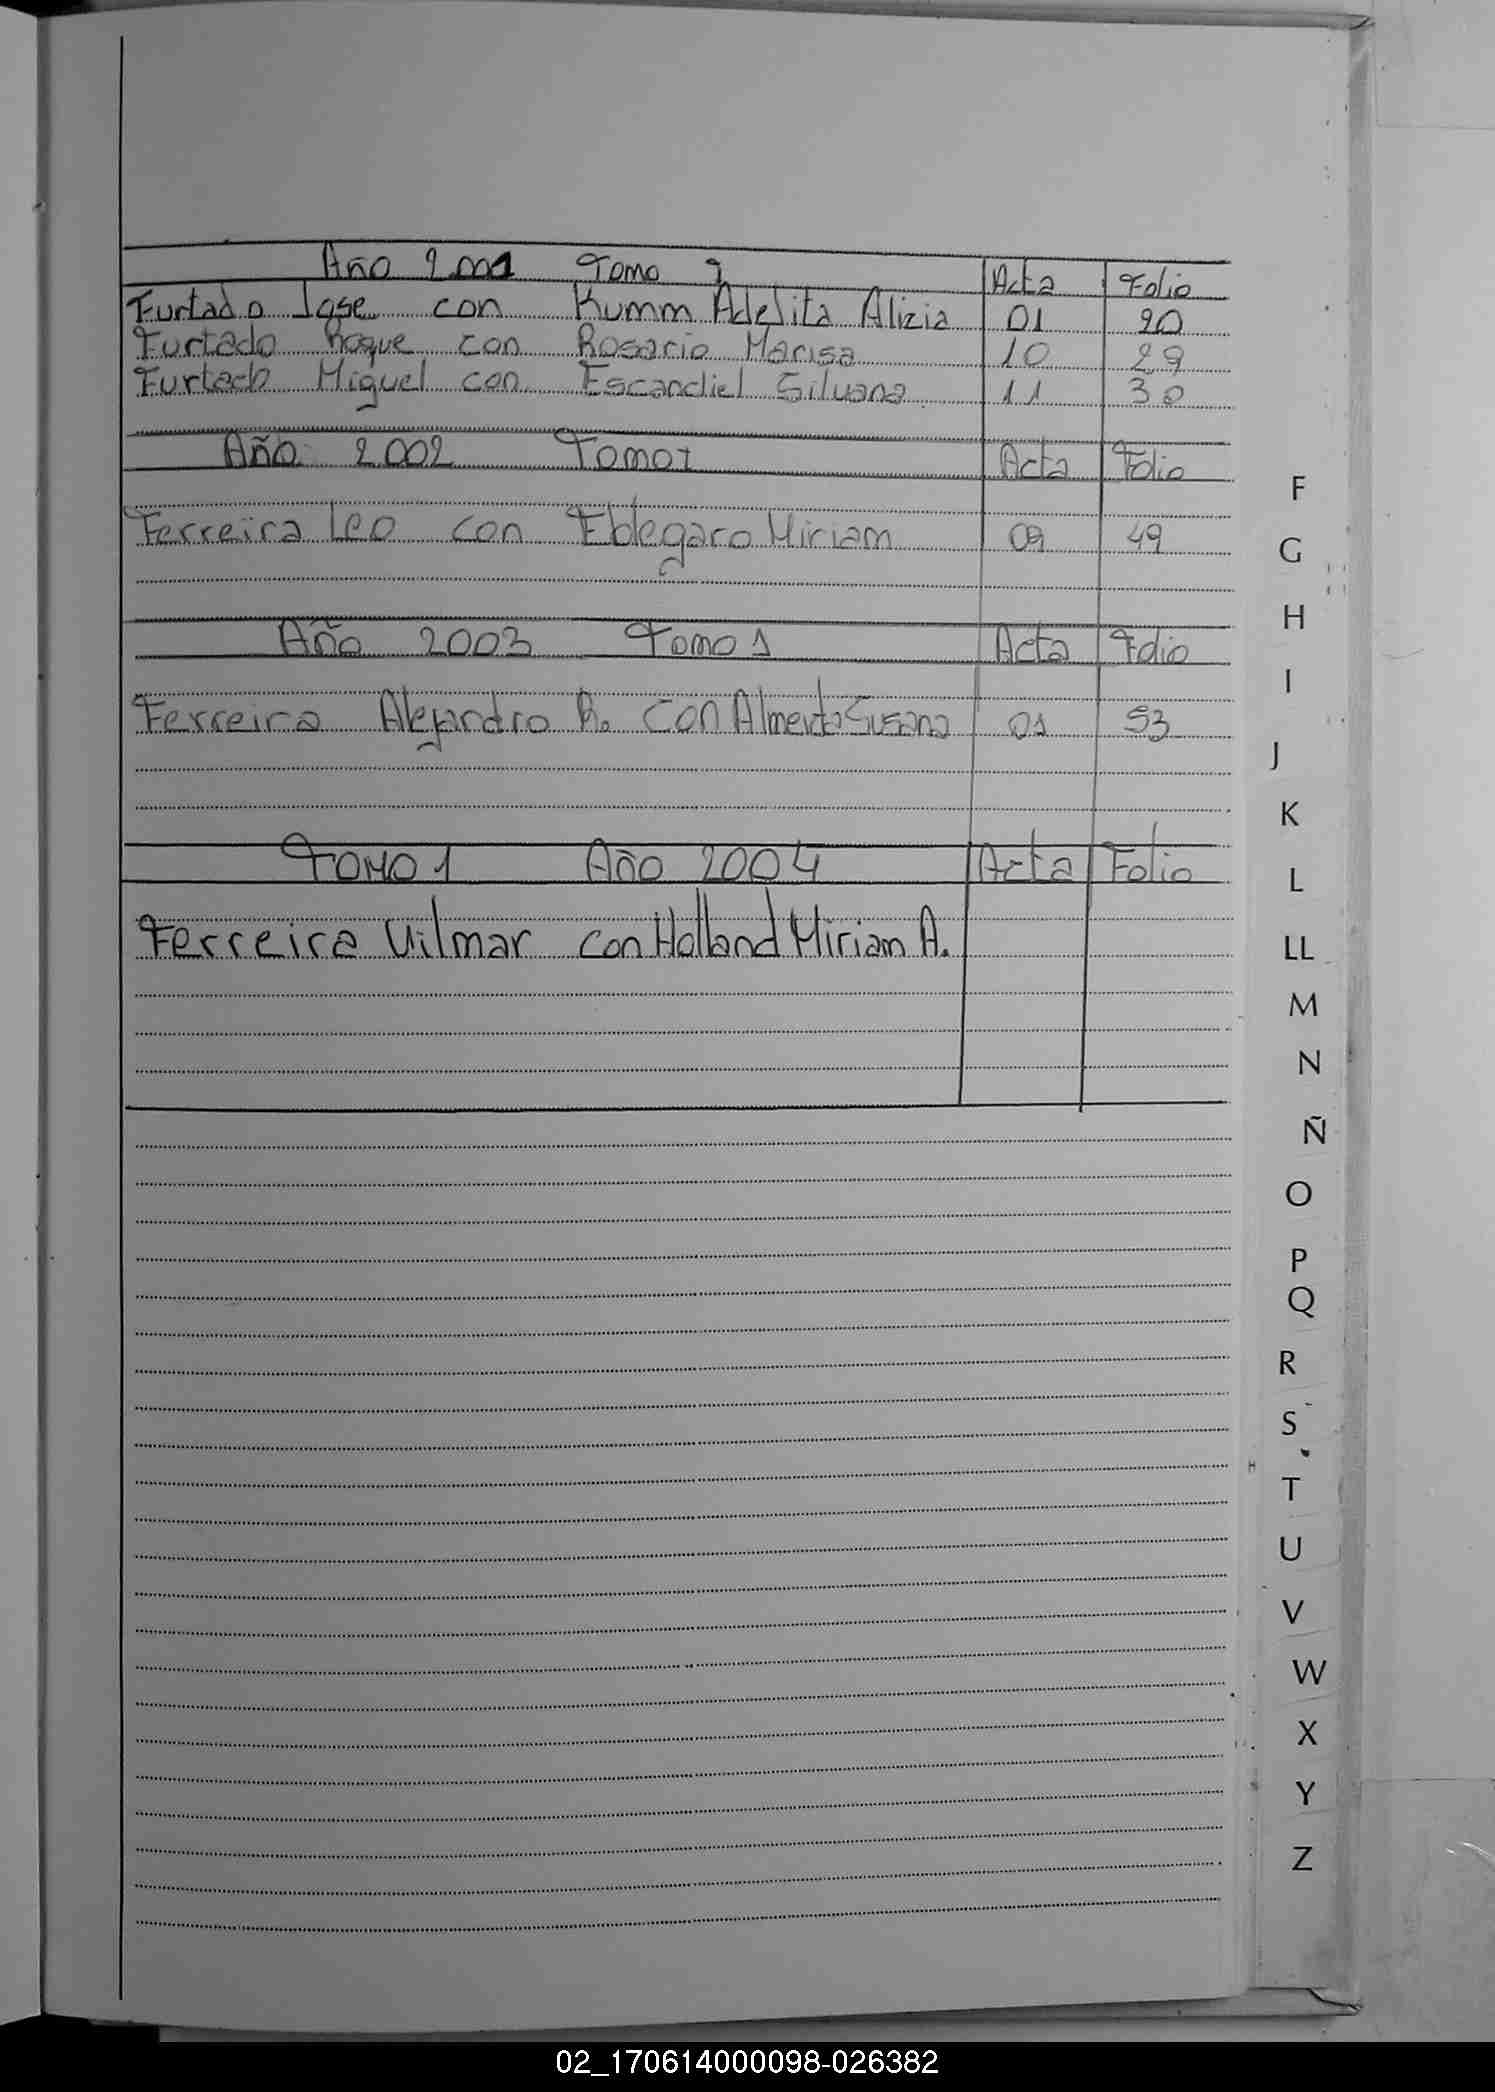 Año 2001 Tomo 1 Acta Folio
Furtado Jose con Kumm Adelita Alizia 01 20
Furtado Roque con Rosario Marisa 10 29
Furtado Miguel con Escandiel Silvana 11 30
Año 2002 Tomo 1 Acta Folio
Ferreira Leo con Eblegaro Miriam 09 49
Año 2003 Tomo 1 Acta Folio
Ferreira Alejandro R. con Almeida Susana 01 53
Tomo 1 Año 2004 Acta Folio
Ferreira Vilmar con Holland Miriam A.
F
G
H
I
J
K
L
LL
M
N
Ñ
O
P
Q
R
S
T
U
V
W
X
Y
Z
02_170614000098-026382